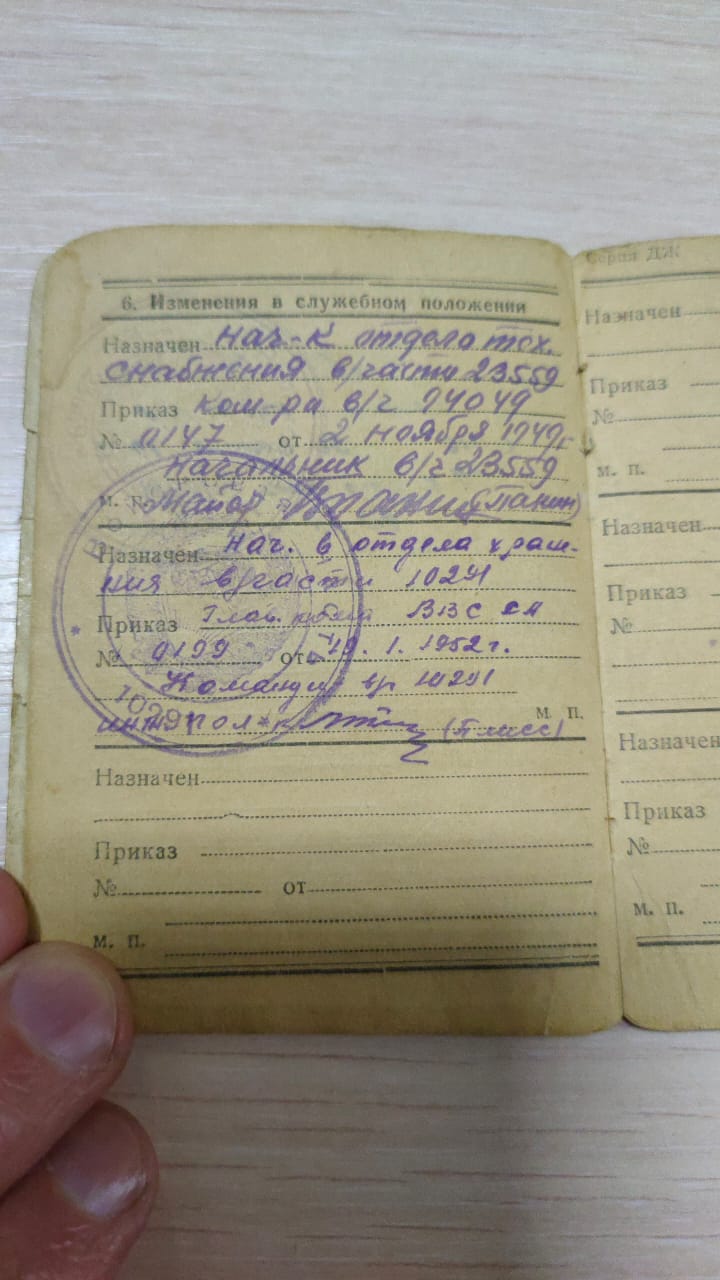 6. Изменения в служебном положении
Назначен Нач-к отдела тех.
снабжения в/части 23559
Приказ ком-ра в/ч 94049
№ 0147 от 2 ноября 1949г
Начальник в/ч 23559
м. п. Майор (Панин)
Назначен Нач. отдела хране-
ния в/части 10291
Приказ ВВС СА
№ 0199 от 19. 1. 1952 г.
Командир в/ч 10291
м. п.
10291
Назначен
Приказ
№ от
м. п.
Серия ДЖ
Назначен
Приказ
№
м. п.
Назначен
Приказ
№
Назначен
Приказ
№
м. п.